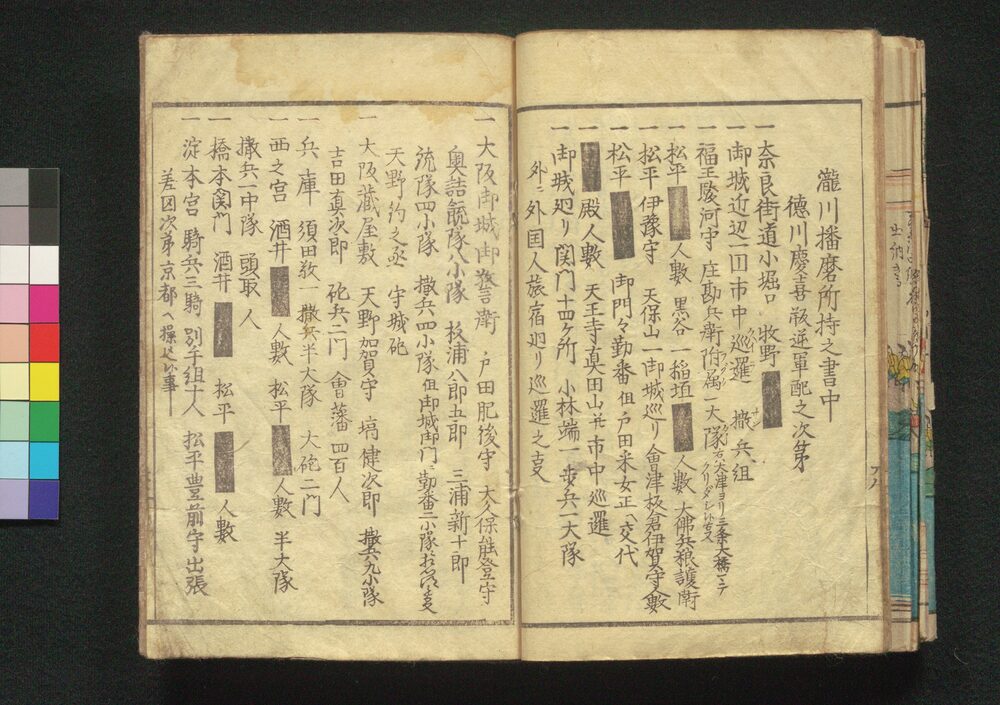 瀧川播磨所持之書中
徳川慶喜叛逆軍配之次第
一奈良街道小堀口 牧野
一御城近辺一円市中巡邏 撒兵組
一福王駿河守 庄勘兵衛附属一大隊右ハ大津ヨリ三条大橋マデクリダシ
一松平 人數 黒谷 一稲垣 人數 大佛兵粮護衛
一松平伊豫守 天保山一御城巡り會津板倉伊賀守人數
一松平 御門々勤番但戸田采女正ト交代
一 殿人數 天王寺真田山并市中巡邏
一御城廻り関門十四ヶ所 小林端一歩兵一大隊
外ニ外国人旅宿廻り巡邏之支
一大阪御城御警衛 戸田肥後守 大久保能登守
奥詰銃隊八小隊 板浦八郎五郎 三浦新十郎
銃隊四小隊 撒兵四小隊但御城御門ニ勤番二小隊
天野釣之丞 守城砲
一大阪蔵屋敷 天野加賀守 塙健次郎 撒兵九小隊
吉田直次郎 砲兵二門 會藩四百人
一兵庫 須田敬一 撒兵半大隊 大砲二門
一西之宮 酒井 人數 松平 人數 半大隊
撒兵一中隊 頭取 人
一橋本関門 酒井 松平 人數
一淀本宮 騎兵三騎 別手組十人 松平豊前守出張
差図次第京都へ操込候事